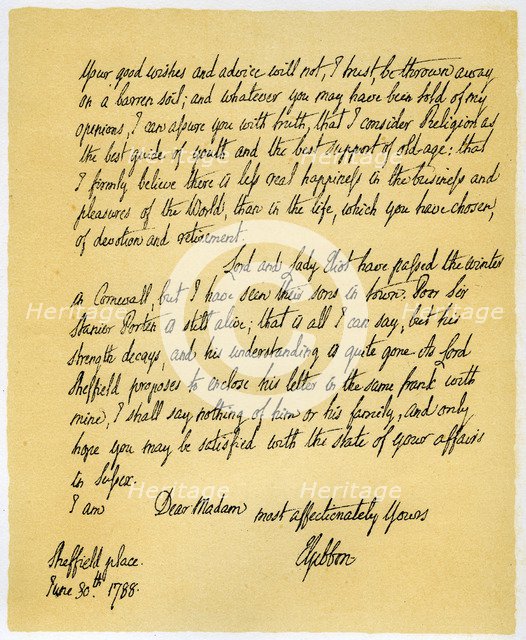 Your good wishes and advice will not, I trust, be thrown away
on a barren soil; and whatever you may have been told of my
opinions, I can assure you with truth, that I consider Religion as
the best guide of youth and the best support of old-age: that
I firmly believe there is less real happiness in the business and
pleasures of the World, than in the life, which you have chosen,
of devotion and retirement.
Lord and Lady Eliot have passed the winter
in Cornwall, but I have seen their sons in town. Poor Sir
Stanier Porten is still alive; that is all I can say, but his
strength decays, and his understanding is quite gone. As Lord
Sheffield proposes to inclose his letter in the same frank with
mine, I shall say nothing of him or his family, and only
hope you may be satisfied with the state of your affairs
in Sussex.
I am Dear Madam most affectionately Yours
EGibbon
Sheffield place.
June 30th. 1788.
Heritage
Heritage
Heritage
Heritage
Heritage
Heritage
©